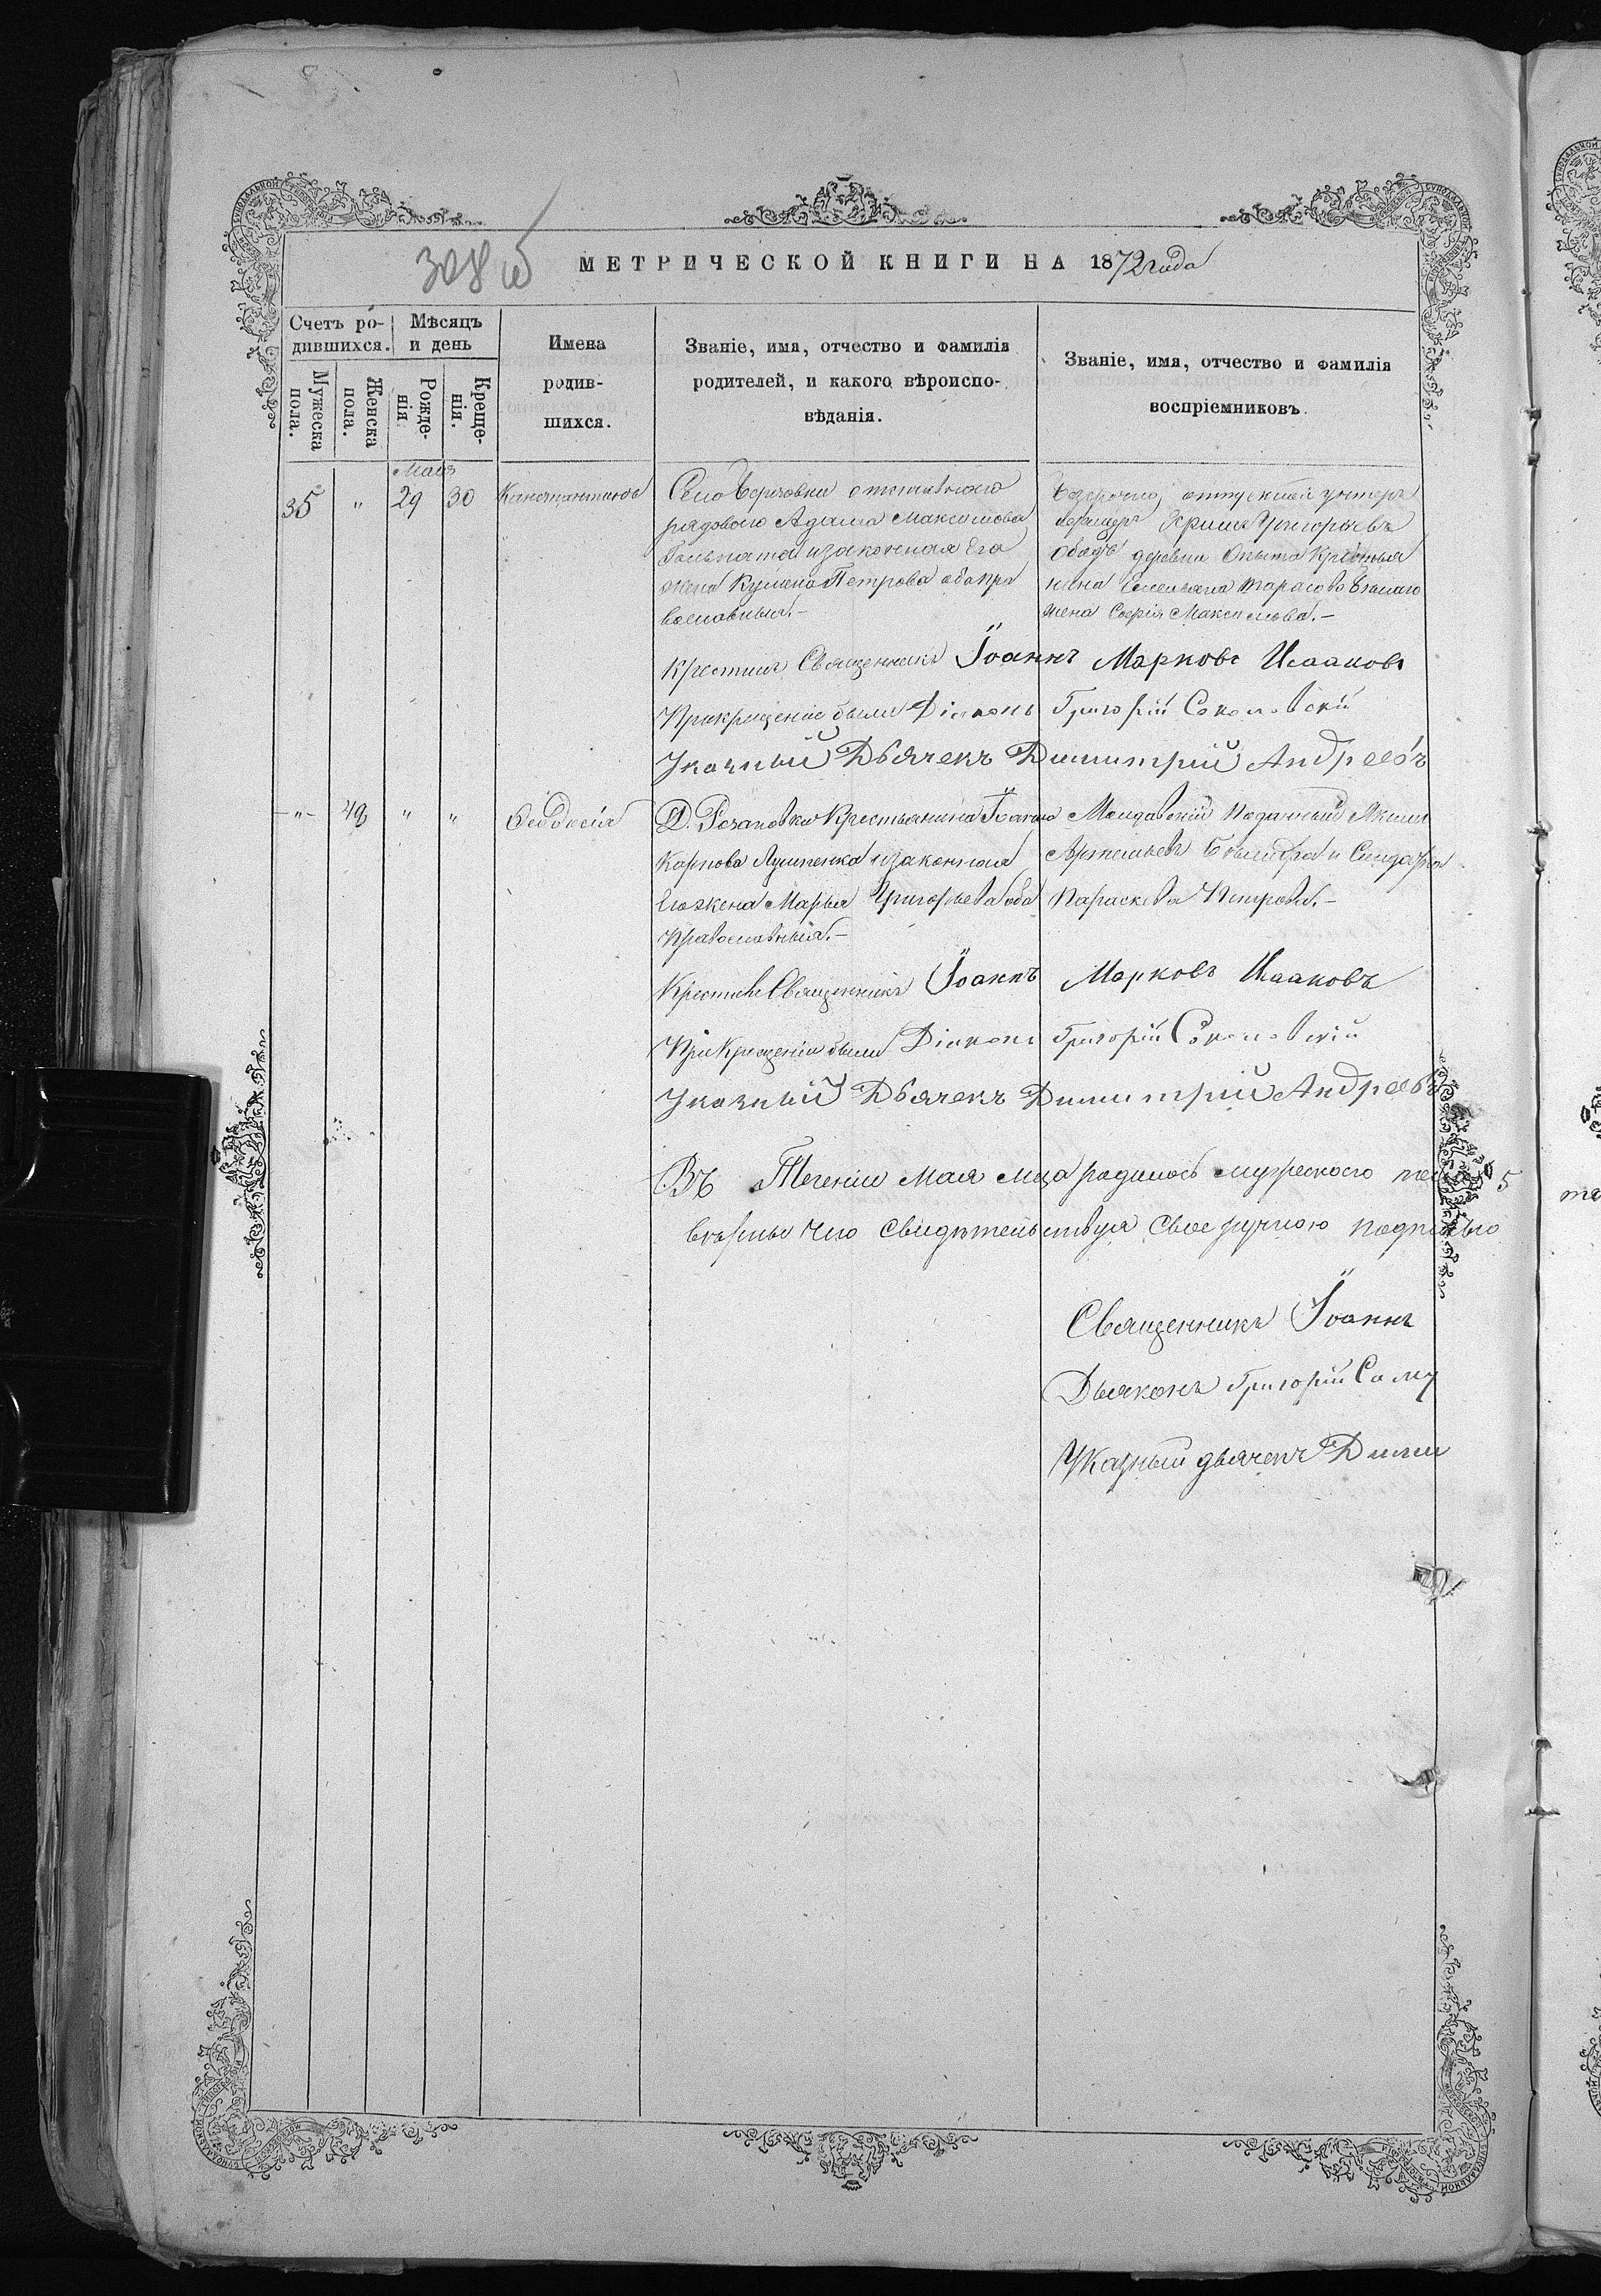 308 об
МЕТРИЧЕСКОЙ КНИГИ НА 1872 года
Счетъ ро-
дившихся.
Мѣсяцъ
и день
Мужеска
пола.
Женска
пола.
Рожде-
нія
Креще-
нія.
Имена
родив-
шихся.
Званіе, имя, отчество и фамилія
родителей, и какого вѣроиспо-
вѣданія.
Званіе, имя, отчество и фамилія
воспріемниковъ.
Мая
35 " 29 30 Константинъ
Село отставного
рядоваго Адама Максимова
изаконная Его
жена Петрова оба пра
вославныя.-
отпускной унтеръ
Григорьевъ
деревни Крестья
нина Емельяна Тарасова
жена Софія Максимова.-
Крестилъ Священникъ Іоаннъ Марковъ Исааковъ
Прикрещеніи были Діаконъ Григорій Соколовскій
Указный Дьячекъ Димитрій Андреевъ
-"- 42 " " Ѳеодосія
Д. Резановки Крестьянина Іоанна
Карпова Лушпенка изаконная
Егожена Марья Григорьева оба
Православныя.-
Молдавскій Поданный Якимъ
Артемьевъ
Параскева Петрова.-
Крестилъ Священникъ Іоаннъ Марковъ Исааковъ
ПриКрещеніи были Діаконъ Григорій Соколовскій
Указный Дьячекъ Димитрій Андреевъ
Въ Теченіи Мая мца родилось мужескаго 5
вѣрны чио Свидѣтельствуя Своеручною подписью
Священникъ Іоаннъ
Дьяконъ Григорій Со
Указный дьячекъ Дими